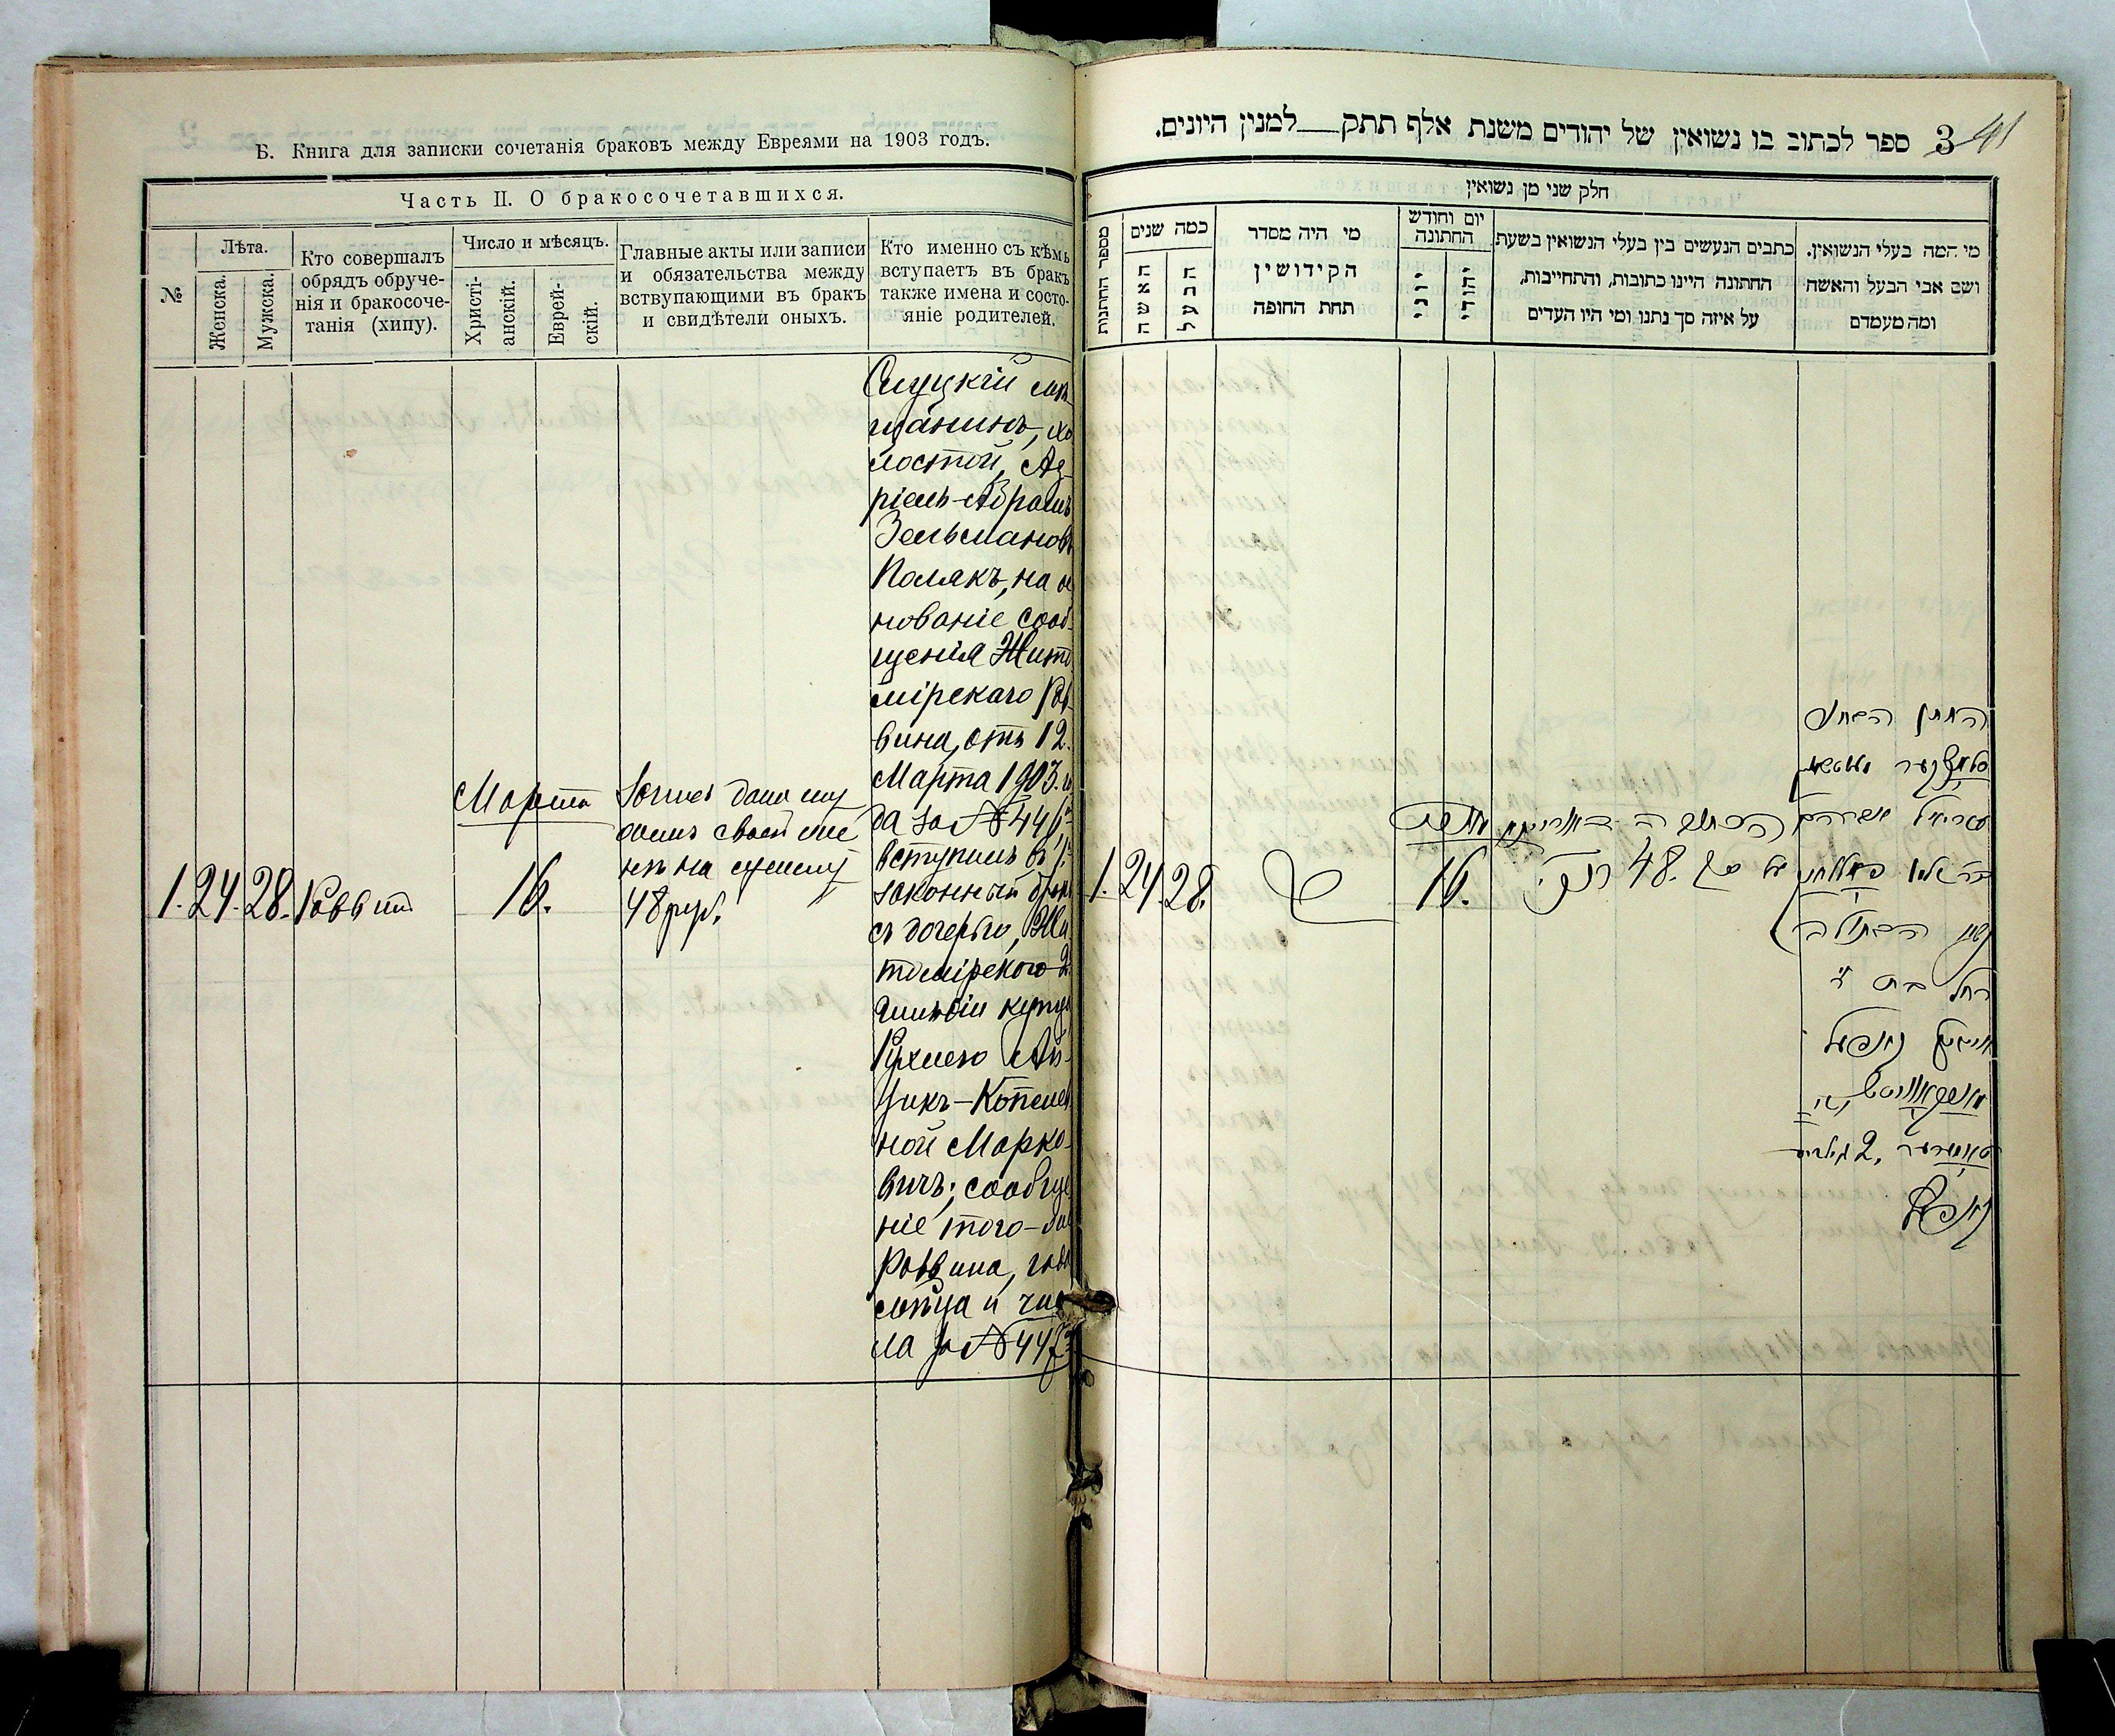 Б. Книга для записки сочетанія браковъ между Евреями на 1903 годъ.
Часть II. О бракосочетавшихся.
№
Лѣта.
Женска.
Мужска.
Кто совершалъ
обрядъ обруче-
нія и бракосоче-
танія (хипу).
Число и мѣсяцъ.
Христі-
анскій.
Еврей-
скій.
Главные акты или записи
и обязательства между
вствупающими въ бракъ
и свидѣтели оныхъ.
Кто именно съ кѣмъ
вступаетъ въ бракъ
также имена и состо-
яніе родителей.
1. 24. 28. Раввинъ
Марта
16.
дан
своей же
нѣ на сумму
48 руб.
Слуцкій мѣ
щанинъ, хо
лостой, Аз
ріель-Абрамъ
Зельманов
Полякъ, на ос
нованіе сооб
щенія Жито
мірскаго Рав
вина, отъ 12
Марта 1903 го
да за № 446
вступилъ въ
законный бракъ
съ дочерью, Жи
томірскаго 2
гильдіи купца
Рухлею Ай-
зикъ-Копеле
ной Марко-
вичъ; сообще
ніе того-же
Раввина,
мѣсяца и чис
ла за № 447
3 ספר לכתוב בו נשואין של יהודים משנת אלף תתק למנין היונים.
41
חלק שני מן נשואין
מספר החתונות
כמה שנים
האשה
הבעל
מי היה מסדר
הקידושין
תחת החופה
יום וחודש
החתונה
יוני
יהודי
כתבים הנעשים בין בעלי הנשואין בשעת
החתונה היינו כתובות, והתחייבות,
על איזה סך נתנו ומי היו העדים
מי המה בעלי הנשואין.
ושם אבי הבעל והאשה
ומה מעמדם
1. 24. 28.
16.
על סך 48.
החתן הבחור
עזריאל אברהם
הבתולה
רחל בת ר'
אייזיק קאפעל
2